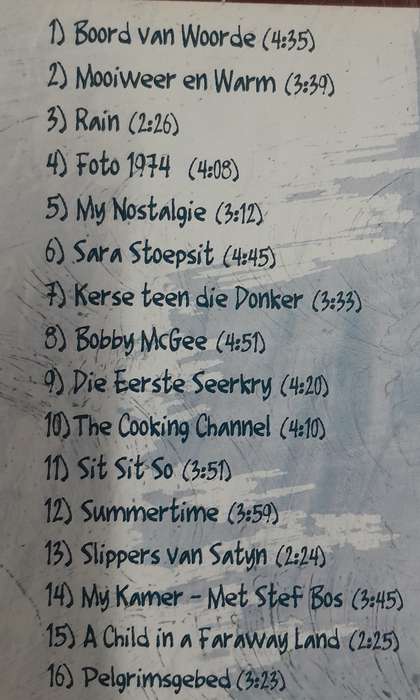 1) Boord van Woorde (4:35)
2) Mooiweer en Warm (3:39)
3) Rain (2:26)
4) Foto 1974 (4:08)
5) My Nostalgie (3:12)
6) Sara Stoepsit (4:45)
7) Kerse teen die Donker (3:33)
8) Bobby McGee (4:51)
9) Die Eerste Seerkry (4:20)
10) The Cooking Channel (4:10)
11) Sit Sit So (3:51)
12) Summertime (3:59)
13) Slippers van Satyn (2:24)
14) My Kamer - Met Stef Bos (3:45)
15) A Child in a Faraway Land (2:25)
16) Pelgrimsgebed (3:23)